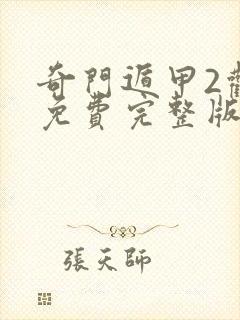 奇門遁甲2
免費完整版
張天師